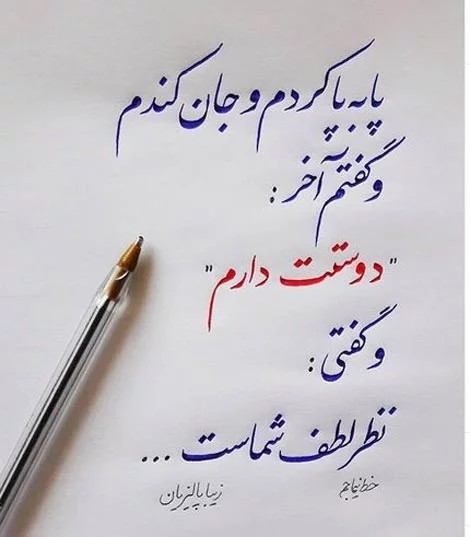 پا به پا کردم و جان کندم
و گفتم آخر :
"دوستت دارم"
و گفتی :
نظر لطف شماست ...
زیبا پالیزبان